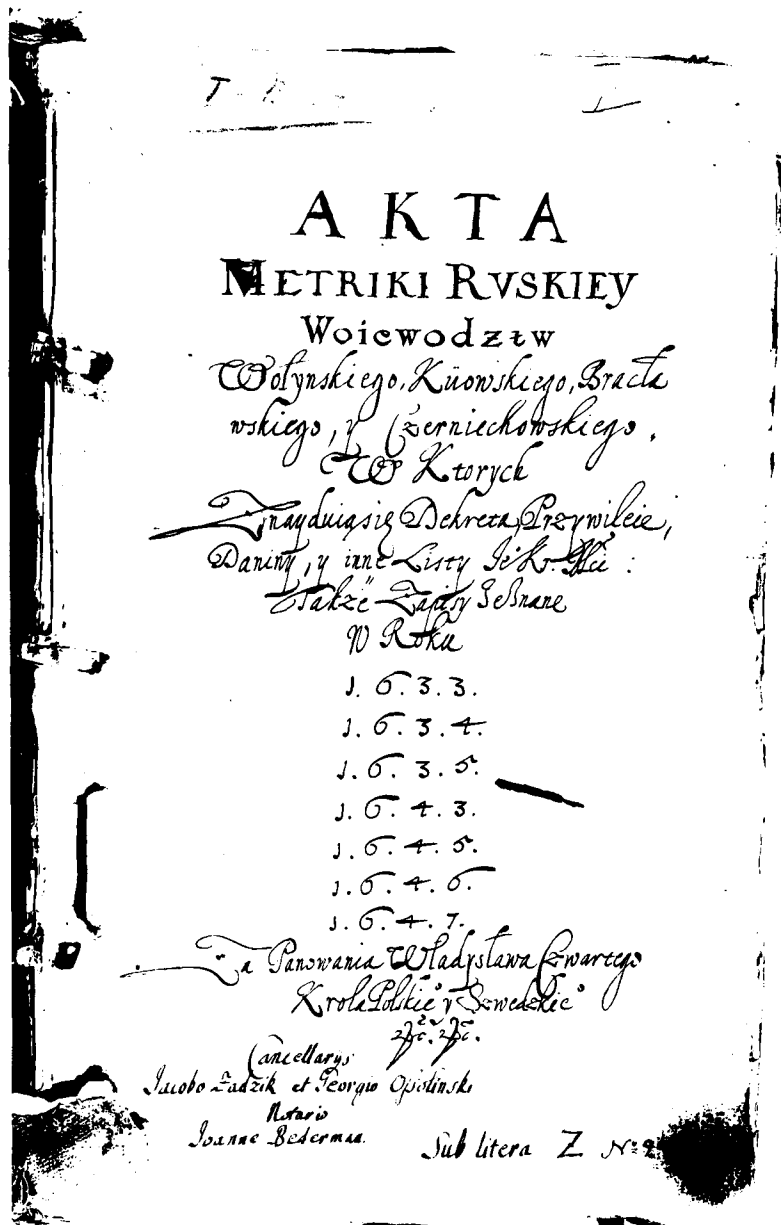 AKTA
METRIKI RVSKIEY
Woiewodztw
Wołynskiego, Kiiowskiego, Bracła
wskiego, y Czerniechowskiego.
W Ktorych
Znayduią się Dekreta, Przywileie,
Daniny, y inne Listy Je° Kr. Mci:
Takze Zapisy Jednane
W Roku
1. 6. 3. 3.
1. 6. 3. 4.
1. 6. 3. 5.
1. 6. 4. 3.
1. 6. 4. 5.
1. 6. 4. 6.
1. 6. 4. 7.
Za Panowania Władysława Czwartego
Krola Polskie° y Szwedzkie°
Cancellarys
Jacobo Zadzik et Georgio Ossolinski
Notario
Joanne Bederman.
Sub litera Z No